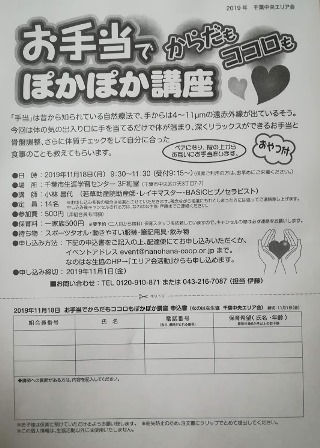 2019年 千葉中央エリア会
お手当で からだも ココロも
ぽかぽか講座
「手当」は昔から知られている自然療法で、手からは4〜11μmの遠赤外線が出ているそう。
今回は体の気の出入り口に手を当てるだけで体が温まり、深くリラックスができるお手当と
骨盤調整、さらに体質チェックをして自分に合った
食事のことも教えてもらいます。
おやつ付
●日 時:2019年11月18日(月) 9:30〜11:30 (受付9:15〜)
●場 所:千葉市生涯学習センター 3F和室
●講 師:小林 昌代
●定 員:14名
●参加費:500円
●保育料:一家族500円
●持ち物:スポーツタオル・動きやすい服装・筆記用具・飲み物
●申し込み方法:下記の申込書をご記入の上、配達便にてお申し込みいただくか、
イベントアドレス event@nanohana-coop.or.jp まで
なのはな生協のHP→「エリア会活動」からも申し込めます。
●申し込み締切り:2019年11月1日(金)
■お問い合わせ:TEL 0120-910-871 または 043-216-7087 (担当 伊藤)
2019年11月18日 お手当でからだもココロもぽかぽか講座 申込書
組合員番号 氏 名 電話番号 保育希望(氏名・年齢)